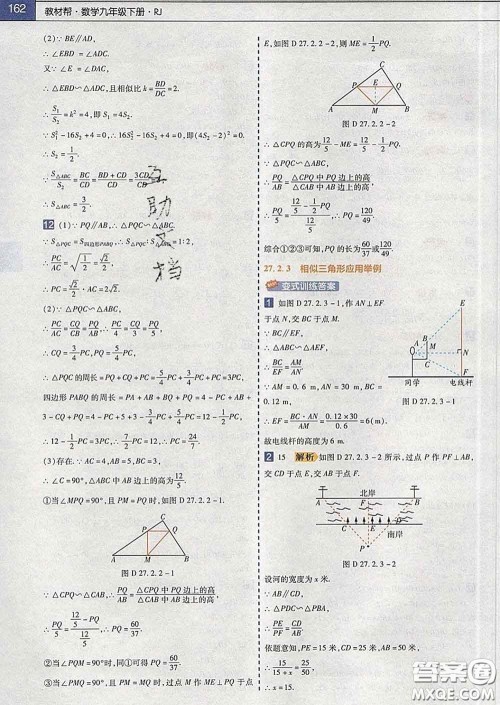 162 教材帮·数学九年级下册·RJ
(2)∵BE∥AD,
∴∠E=∠CAD.
又∵∠E=∠DAC,
∴△EBD∽△ADC,且相似比 k=BD/DC=2.
∴S₁/S₂=k²=4,即 S₁=4S₂.
∵S₁²-16S₂+4=0,∴16S₂²-16S₂+4=0,即(4S₂-2)²=0.
∴S₂=1/2.
∵S△ABC/S₂=BC/CD=(BD+CD)/CD=3CD/CD=3,
∴S△ABC=3/2.
12 (1)∵PQ∥AB,∴△PQC∽△ABC.
∵S△PQC=S四边形PABQ,∴S△PQC:S△ABC=1:2,
∴PC/AC=√(1/2)=√2/2,
(2)∵△PQC∽△ABC,
∴PC/AC=CQ/CB=PQ/AB,∴PC/4=CQ/3=PQ/5,
∴CQ=3/4PC,PQ=5/4PC,
∴△PQC 的周长=PC+CQ+PQ=PC+3/4PC+5/4PC=3PC,
四边形 PABQ 的周长=PA+AB+BQ+PQ=4-PC+5+
3-CQ+PQ=4-PC+5+3-3/4PC+5/4PC=12-1/2PC,
∴12-1/2PC=3PC,∴7/2PC=12,∴PC=24/7.
(3)存在.∵AC=4,AB=5,BC=3,∴∠ACB=90°,
∴△ABC 中 AB 边上的高为12/5.
①当∠MPQ=90°,且 PM=PQ 时,如图 D 27.2.2-1,
C
P
Q
A
M
B
图 D 27.2.2-1
∵△CPQ∽△CAB,∴PQ/AB=△CPQ 中 PQ 边上的高/△CAB 中 AB 边上的高,
∴PQ/5=(12/5-PQ)/(12/5),∴PQ=60/37.
②当∠PQM=90°时,同①可得 PQ=60/37.
③当∠PMQ=90°,且 PM=MQ 时,过点 M 作 ME⊥PQ 于点
E,如图 D 27.2.2-2,则 ME=1/2PQ.
C
P
E
Q
A
M
B
图 D 27.2.2-2
∴△CPQ 的高为12/5-ME=12/5-1/2PQ.
∵△PQC∽△ABC,
∴PQ/AB=△CPQ 中 PQ 边上的高/△CAB 中 AB 边上的高,
∴PQ/5=(12/5-1/2PQ)/(12/5),∴PQ=120/49.
综合①②③可知,PQ 的长为60/37或120/49.
27.2.3 相似三角形应用举例
变式训练答案
1 如图 D 27.2.3-1,作 AN⊥EF
于点 N,交 BC 于点 M.
∵BC∥EF,
∴△ABC∽△AEF,
∴BC/EF=AM/AN.
∵AM=0.6 m,AN=30 m,BC=
0.12 m,
∴EF=BC·AN/AM=0.12×30/0.6=6(m).
故电线杆的高度为 6 m.
E
B
M
N
C
F
同学
电线杆
图 D 27.2.3-1
2 15 解析 如图 D 27.2.3-2 所示,过点 P 作 PF⊥AB,
交 CD 于点 E,交 AB 于点 F.
北岸
南岸
P
图 D 27.2.3-2
设河的宽度为 x 米.
∵AB∥CD,
∴△PDC∽△PBA,
∴PE/PF=CD/AB.
依题意知,PE=15 米,CD=20 米,AB=50 米,
∴15/(15+x)=20/50,
∴x=15.
互
助
文
档
答案圈
MXQE.COM